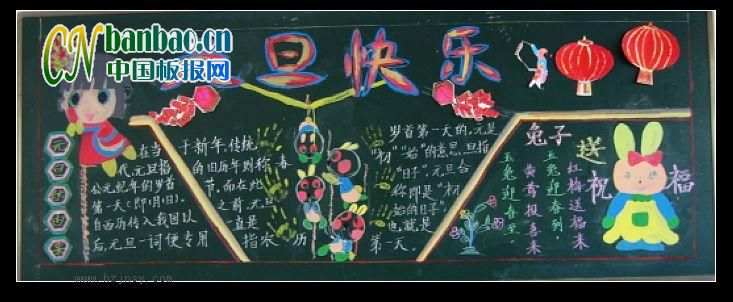 CN banbao.cn
中国板报网
元旦快乐
元旦的由来
在当代,元旦指
公元纪年的岁首
第一天(即1月1日)。
自西历传入我国以
后,元旦一词便专用
于新年,传统
的旧历年则称春
节。而在此
之前,元旦
一直是
指农历
岁首第一天的。元是
"初""始"的意思,旦指
"日子",元旦合
称即是"初
始的日子",
也就是
第一天。
兔子送祝福
红梅送福来
玉兔迎春到,
黄莺报喜来
玉兔迎春至,
www.hzjnsy.com